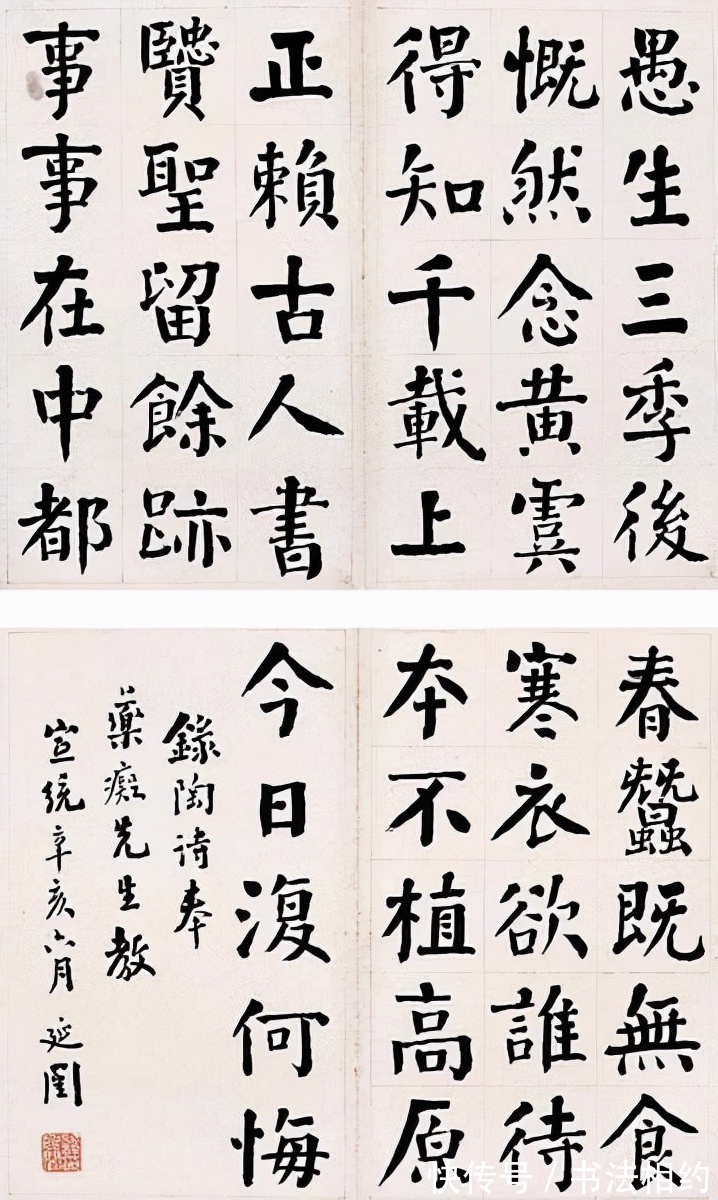 愚生三季後
慨然念黄虞
得知千載上
正賴古人書
賢聖留餘跡
事事在中都
春蠶既無食
寒衣欲誰待
本不植高原
今日復何悔
錄陶詩奉
藥癡先生教
宣統辛亥六月 延闓
快传号 / 书法相约